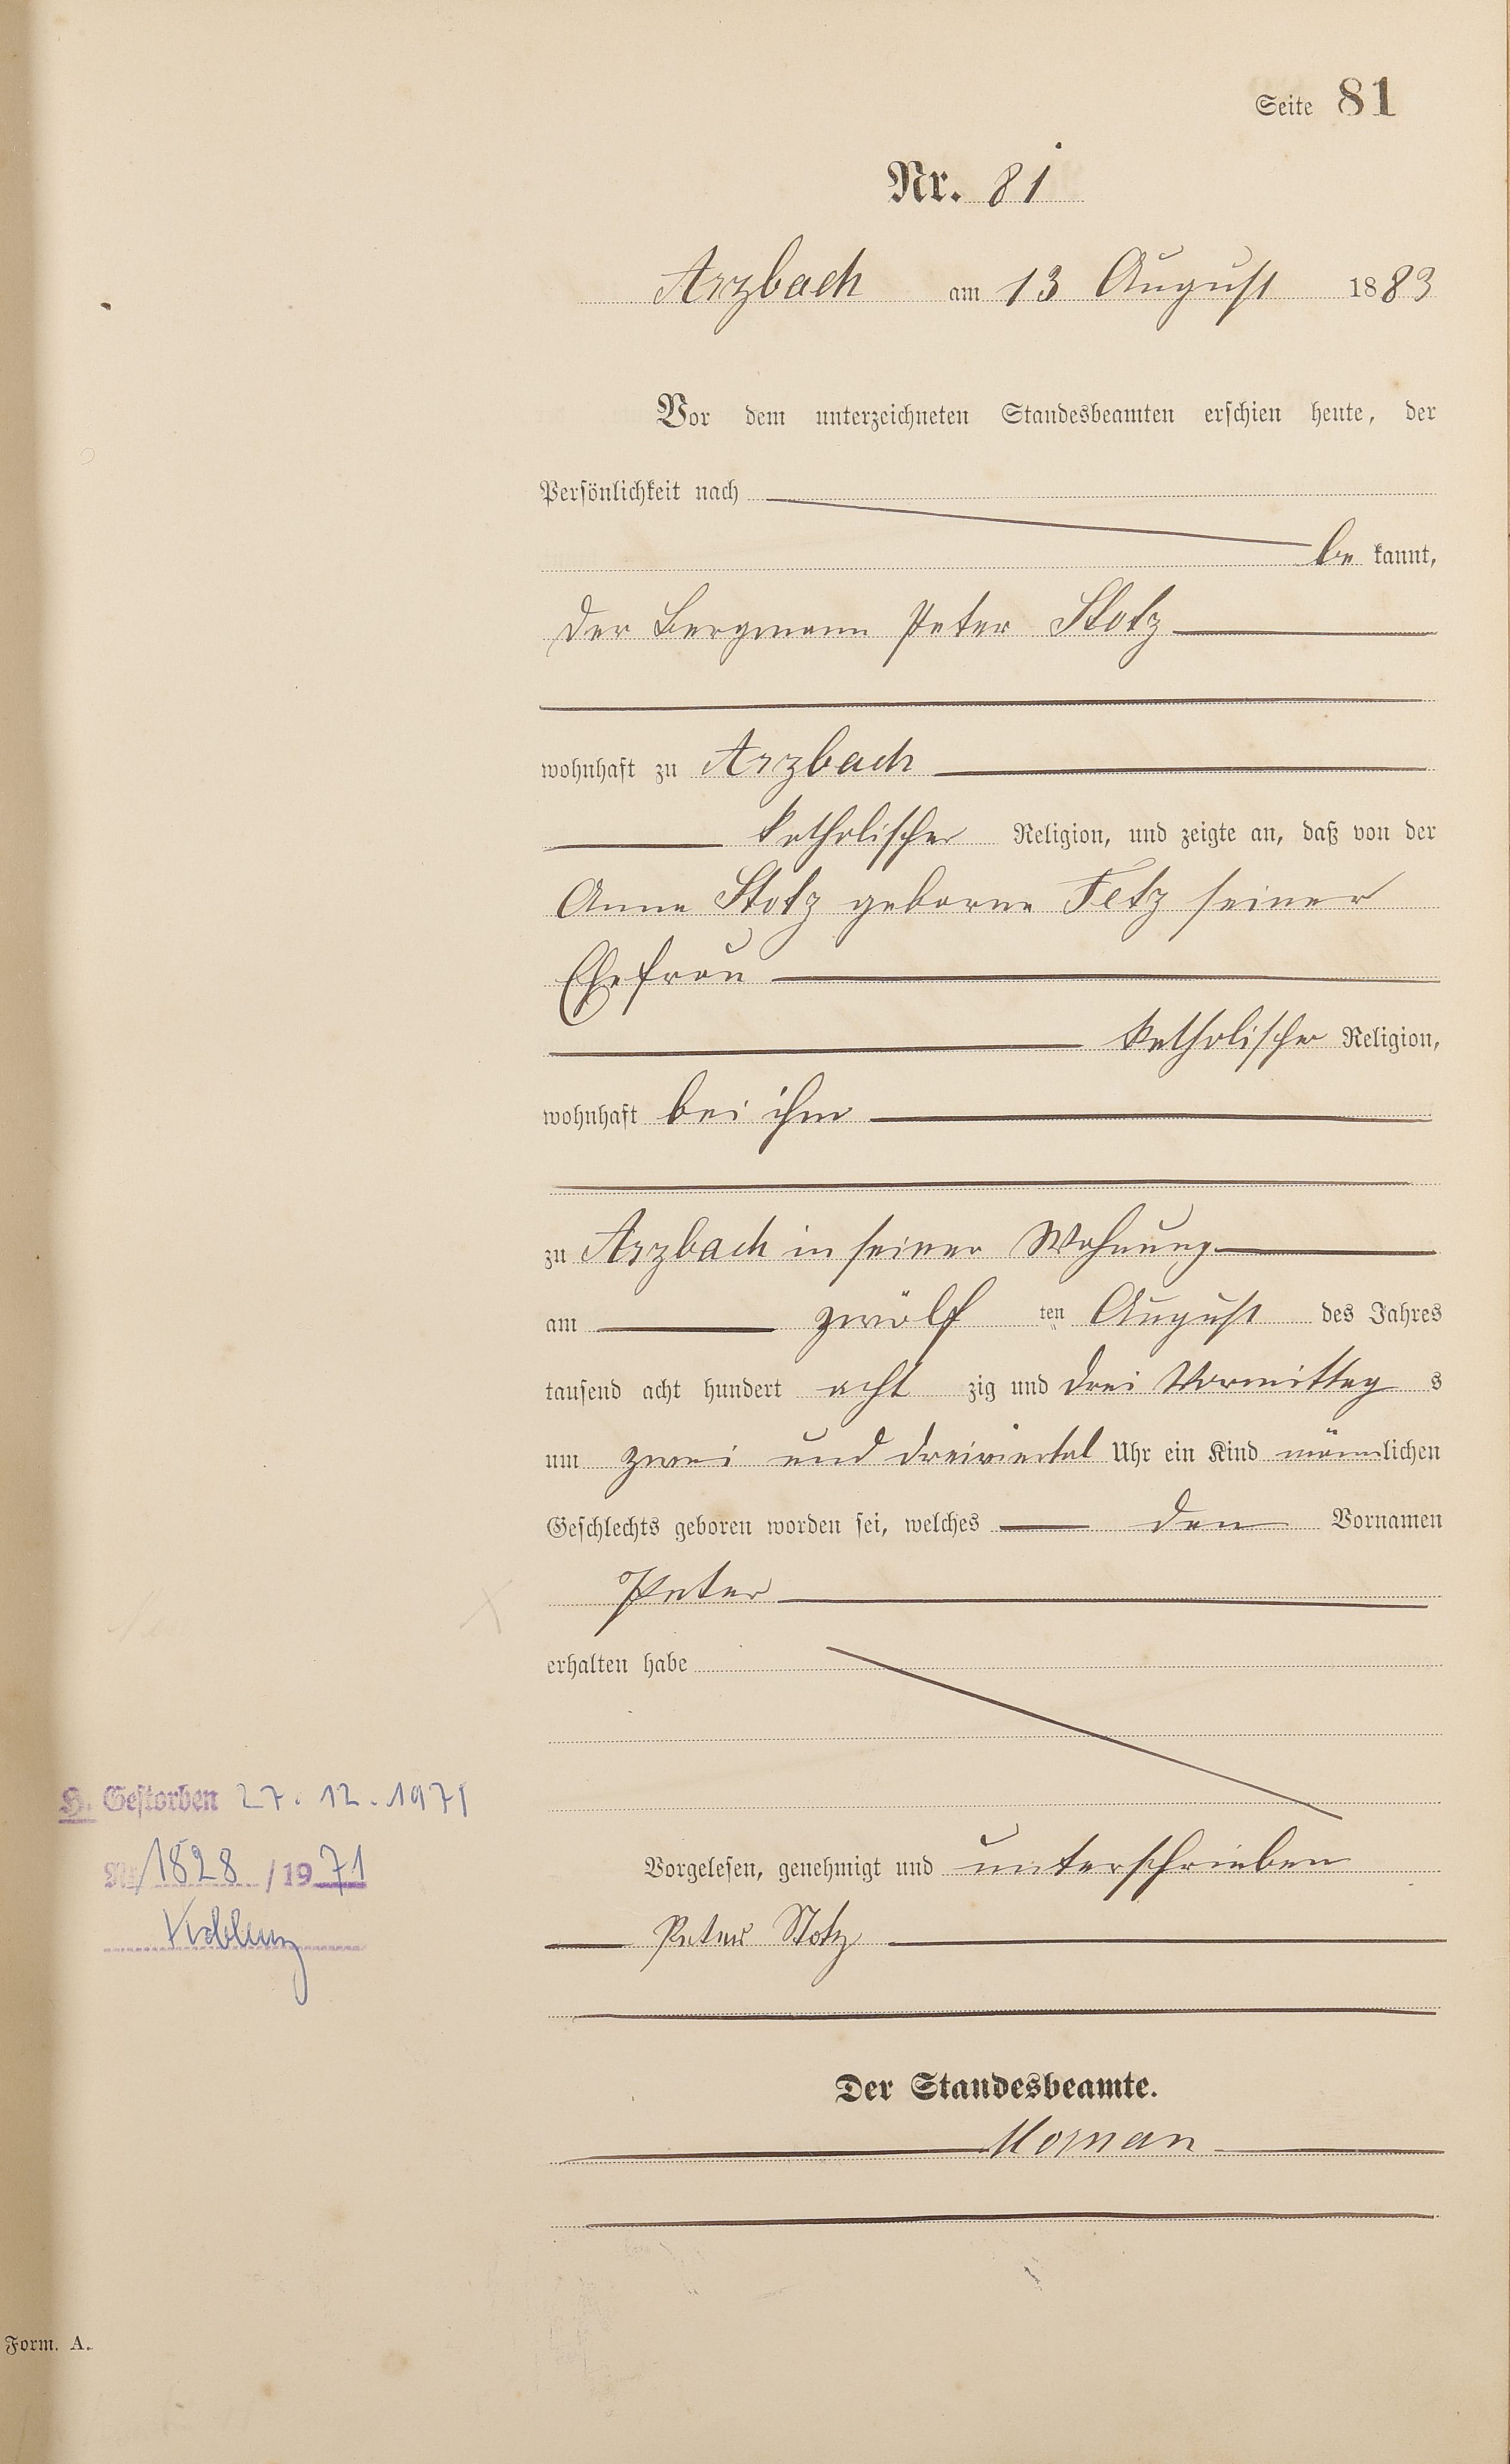 Seite 81
Nr. 81
Arzbach am 13 August 1883
Vor dem unterzeichneten Standesbeamten erschien heute, der
Persönlichkeit nach
be kannt,
der Bergmann Peter Stotz
wohnhaft zu Arzbach
katholischer Religion, und zeigte an, daß von der
Anna Stotz geborne Fetz seiner
Ehefrau
katholischer Religion,
wohnhaft bei ihm
zu Arzbach in seiner Wohnung
am zwölf ten August des Jahres
tausend acht hundert acht zig und drei Vormittag s
um zwei und dreiviertel Uhr ein Kind männlichen
Geschlechts geboren worden sei, welches den Vornamen
Peter
erhalten habe
H. Gestorben 27.12.1971
Nr. 1828 /1971
Koblenz
Vorgelesen, genehmigt und unterschrieben
Peter Stotz
Der Standesbeamte.
Form. A.